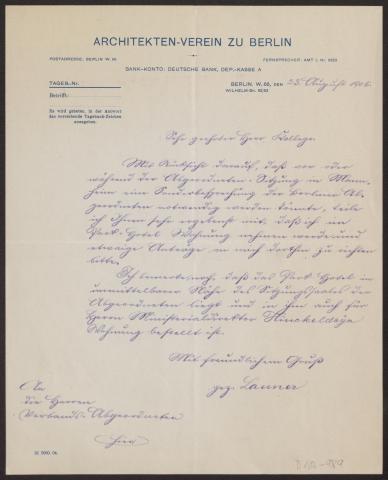 ARCHITEKTEN-VEREIN ZU BERLIN
POSTADRESSE: BERLIN W. 66.
FERNSPRECHER: AMT I, Nr.
BANK-KONTO: DEUTSCHE BANK, DEP.-KASSE A
TAGEB.-Nr.
BERLIN, W. 66, DEN 25. August 1906.
WILHELM-Str. 92/93
Betrifft:
Es wird gebeten, in der Antwort
das vorstehende Tagebuch-Zeichen
anzugeben.
Sehr geehrter Herr Kollege.
Mit Rücksicht darauf, daß vor oder
während der Abgeordneten-Sitzung in Mann-
heim eine Sonderbesprechung der Berliner Ab-
geordneten notwendig werden könnte, teile
ich Ihnen sehr ergebenst mit, daß ich im
Park-Hotel Wohnung nehmen werde und
etwaige Anträge an mich dorthin zu richten
bitte.
Ich bemerke noch, daß das Park Hotel in
unmittelbarer Nähe des Sitzungssaales der
Abgeordneten liegt und in ihm auch für
Herrn Ministerialdirektor Hinckeldeyn
Wohnung bestellt ist.
Mit freundlichem Gruß
gez. Launer
An
die Herren
Verbands-Abgeordneten
Hier